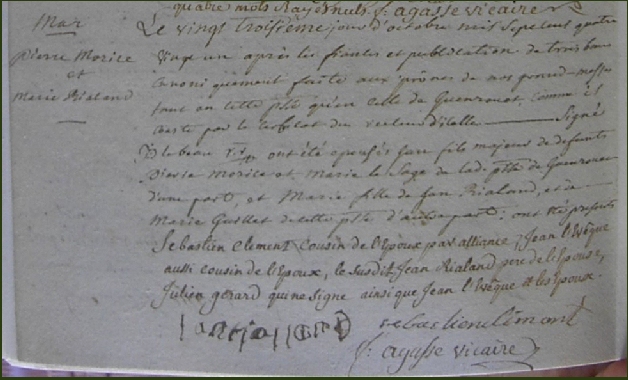 quatre mots Rayés nuls f: agasse vicaire
Mar
Pierre Morice
et
Marie Rialand
Le vingt troisième jour d'octobre mil sept cent quatre
vingt un après les fiances et publication de trois bans
canoniquement faite aux prônes de nos grand-messes
tant en cette psse qu'en celle de Guenrouet comme il
conste par le certificat du recteur d'icelle ——— Signé
ont été épousés fils majeur de defunts
Pierre Morice et Marie le Sage de lad. psse de Guenrouet
d'une part, et Marie fille de Jan Rialand, et de
Marie Guillet de cette psse d'autre part: ont été présents
Sebastien Clement cousin de l'Epoux par alliance, Jean l'Evêque
aussi cousin de l'Epoux, le susdit Jean Rialand pere de l'Epouse,
Julien gerard qui ne signe ainsi que Jean l'Evêque et les Epoux.
sebastien clémant
f: agasse vicaire